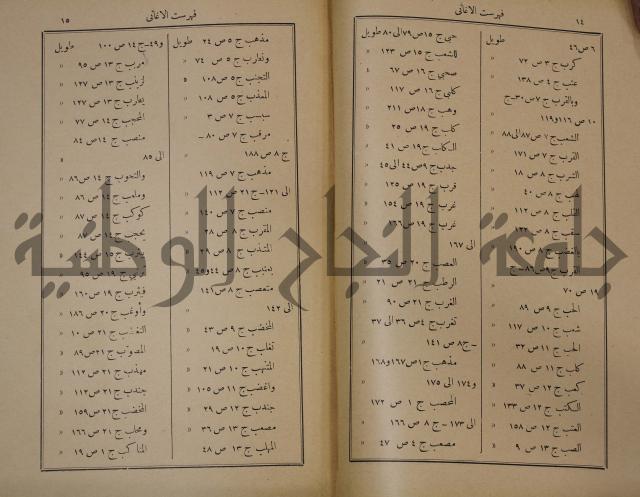 ١٤
فهرست الاغانى
٦ ص ٤٦ طويل
كرب ج ٣ ص ٧٢ »
عتب ج ٤ ص ١٣٨ »
وبالقرب ج ٧ ص ٣٠ــ ج
١٠ ص ١١٦ و ١١٩ »
الشعب ج ٧ ص ٨٧ الى ٨٨
القرب ج ٧ ص ١٧١ »
الشرب ج ٨ ص ١٨ »
ج ٨ ص ٤٠ »
القلب ج ٨ ص ١١٢ »
ج ٨ ص
بالعصب ج ٨ ص ١٩٠
القرب ج ٩ ص ٨٦ــ ج
١٩ ص ٧٠ »
الحب ج ٩ ص ٨٩ »
شعب ج ١٠ ص ١١٧ »
الحب ج ١١ ص ٣٢ »
كلب ج ١١ ص ٨٨ »
كعب ج ١٢ ص ٣٧ »
ج ١٢ ص ١٣٣ »
ج ١٢ ص ١٥٨ »
الصب ج ١٣ ص ٩ »
حبى ج ١٥ ص ٧٩ الى ٨٠ طويل
للشعب ج ١٥ ص ١٢٣ »
صحبى ج ١٦ ص ٦٧ »
كلبى ج ١٦ ص ١١٧ »
وهب ج ١٨ ص ٢١١ »
كلب ج ١٩ ص ٢٥ »
الكلب ج ١٩ ص ٤١ »
جدب ج ٩ ص ٤٤ الى ٤٥ »
قرب ج ١٩ ص ١٢٥ »
غرب ج ١٩ ص ١٥٤ »
غرب ج ١٩ ص ١٦٦
الى ١٦٧ »
العصب ج ٢٠ ص ٣٥ »
الرطب ج ٢١ ص ٢١ »
الغرب ج ٢١ ص ٩٠ »
تغرب ج ٤ ص ٣٦ الى ٣٧
ــ ج ٨ ص ١٤١ »
مذهب ج ١ ص ١٦٧ و ١٦٨
و ١٧٤ الى ١٧٥ »
المحصب ج ١ ص ١٧٢
الى ١٧٣ ــ ج ٨ ص ١٦٦ »
مصعب ج ٤ ص ٤٧ »
فهرست الاغانى
١٥
مذهب ج ٥ ص ٢٤ طويل
وتقارب ج ٥ ص ٧٤ »
التجنب ج ٥ ص ١٠٨ »
المعذب ج ٥ ص ١٠٨ »
سبسب ج ٧ ص ٣ »
مرقب ج ٧ ص ٨٠ ــ
ج ٨ ص ١٨٨ »
مذهب ج ٧ ص ١١٩
الى ١٢١ــ ج ٢١ ص ١١٢ »
منصب ج ٧ ص ١٤٠ »
المقرب ج ٨ ص ٢٨ »
ج ٨ ص ٢٩
ج ٨ ص ٤٤ و ٤٥
متعصب ج ٨ ص ١٤١
الى ١٤٢ »
المخضب ج ٩ ص ٤٣ »
تغلب ج ١٠ ص ١٩ »
ج ١٠ ص ٢١ »
واغضب ج ١١ ص ١٠٥ »
جندب ج ١٢ ص ٢٩ »
مصعب ج ١٣ ص ٣٦ »
المهلب ج ١٣ ص ٤٨
و ٤٩ــ ج ١٤ ص ١٠٠ طويل
ج ١٣ ص ٩٥ »
لزينب ج ١٣ ص ١٢٧ »
يحارب ج ١٣ ص ١٢٧ »
المحجب ج ١٤ ص ٧٧ »
منصب ج ١٤ ص ٨٤
الى ٨٥ »
والتحوب ج ١٤ ص ٨٦ »
ج ١٤ ص ٨٦ »
كوكب ج ١٤ ص ٨٧ »
يحجب ج ١٤ ص ٨٧ »
يثرب ج ١٥ ص ١٤٤ »
ج ١٩ ص ٩٥ »
فيثرب ج ١٩ ص ١٦٠ »
وأوغب ج ٢٠ ص ١٨٦ »
ج ٢١ ص ١٠ »
المصوب ج ٢١ ص ٨٩ »
مهذب ج ٢١ ص ١١٢ »
جندب ج ٢١ ص ١١٢ »
المخضب ج ٢١ ص ١٥٩ »
ومحلب ج ٢١ ص ١٦٦ »
المناكب ج ١ ص ١٩ »
جامعة النجاح الوطنية